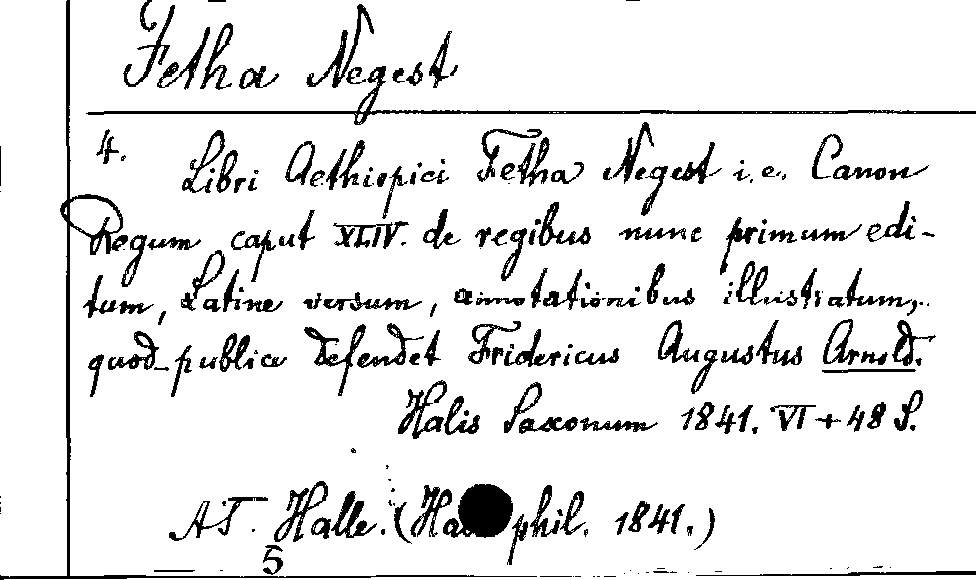 Fetha Negest
4. Libri Aethiopici Fetha Negest i.e. Canon
Regum caput XLIV. de regibus nunc primum edi-
tum, Latine versum, annotationibus illustratum,
quod publice defendet Fridericus Augustus Arnold.
Halis Saxonum 1841. VI + 48 S.
AT. Halle. (Ha phil. 1841.)
5